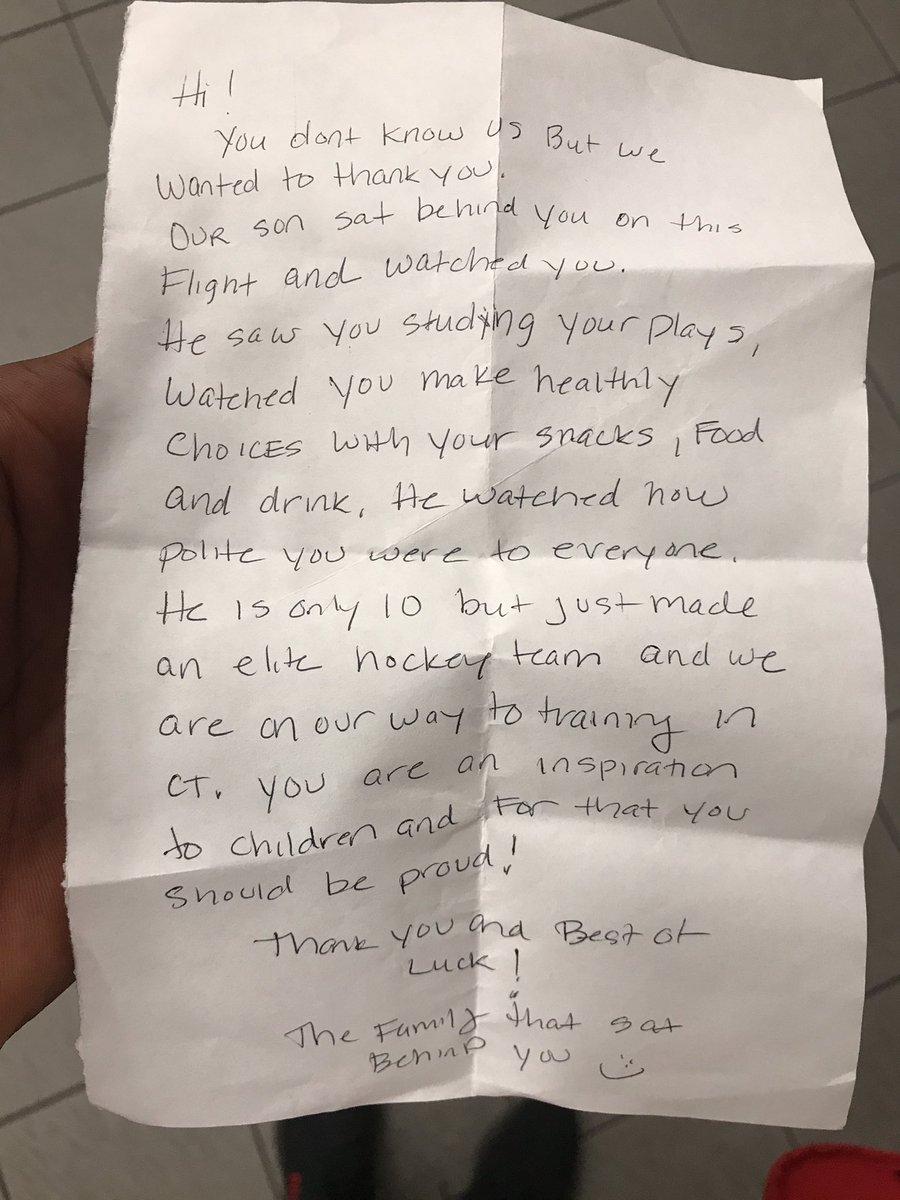 Hi!
You dont know us But we
wanted to thank you.
OUR son sat behind you on this
Flight and watched you.
He saw you studying your plays,
Watched you make healthly
CHOICES with your snacks, Food
and drink. He watched how
polite you were to everyone.
He is only 10 but just made
an elite hockey team and we
are on our way to training in
CT. you are an inspiration
to children and For that you
should be proud!
Thank you and Best of
Luck!
The Family that sat
Behind you